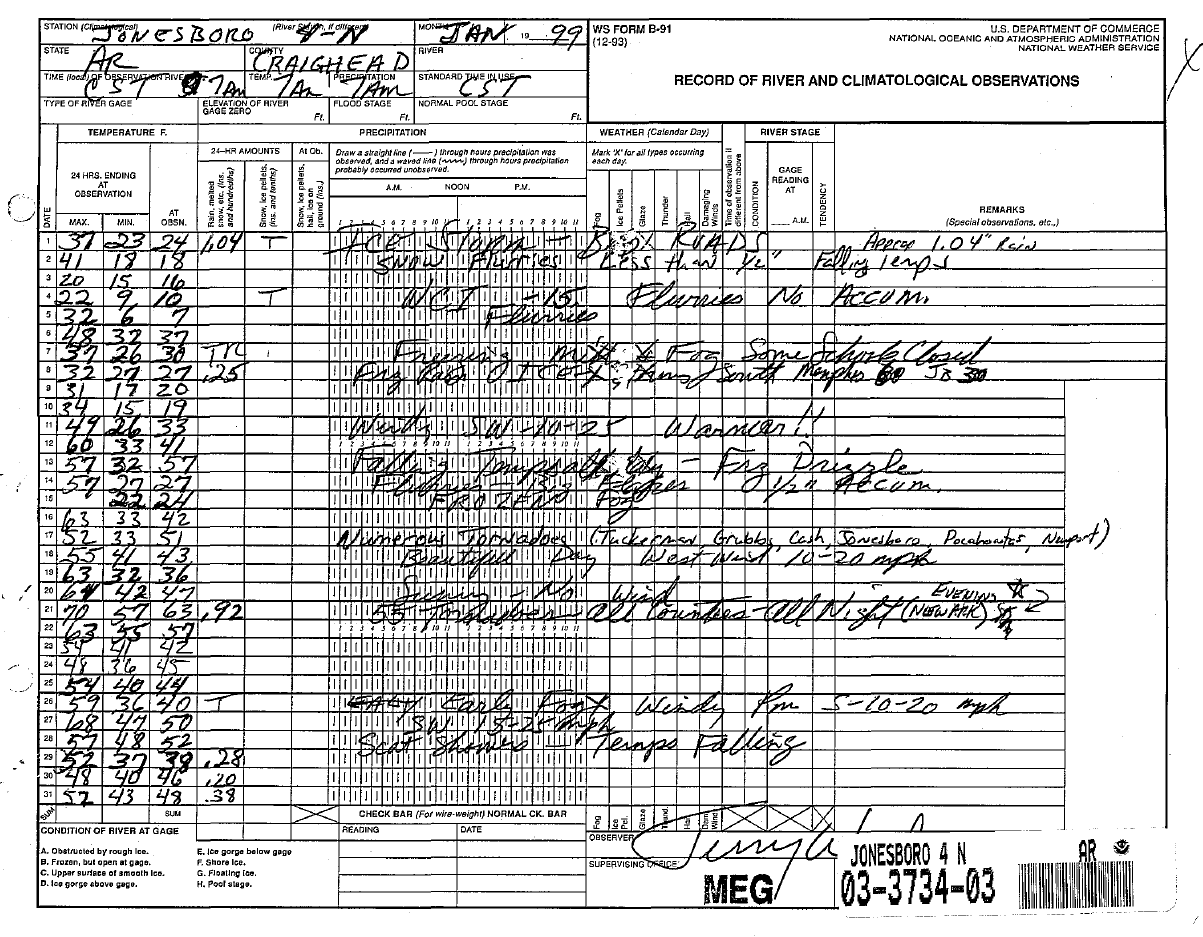 STATION (Climatological) JONESBORO 4-N (River Station, if different) MONTH JAN 19 99
WS FORM B-91
(12-93)
U.S. DEPARTMENT OF COMMERCE
NATIONAL OCEANIC AND ATMOSPHERIC ADMINISTRATION
NATIONAL WEATHER SERVICE
STATE AR COUNTY CRAIGHEAD RIVER
RECORD OF RIVER AND CLIMATOLOGICAL OBSERVATIONS
TIME (local) OF OBSERVATION RIVER CST 7AM TEMP. 7AM PRECIPITATION 7AM STANDARD TIME IN USE CST
TYPE OF RIVER GAGE ELEVATION OF RIVER GAGE ZERO Ft. FLOOD STAGE Ft. NORMAL POOL STAGE Ft.
TEMPERATURE F. PRECIPITATION WEATHER (Calendar Day) RIVER STAGE
24 HRS. ENDING AT OBSERVATION
24-HR AMOUNTS At Ob.
Draw a straight line (——) through hours precipitation was observed, and a waved line (~~~) through hours precipitation probably occurred unobserved.
Mark 'X' for all types occurring each day.
DATE MAX. MIN. AT OBSN.
Rain, melted snow, etc. (Ins. and hundredths)
Snow, ice pellets, (Ins. and tenths)
Snow, ice pellets, hail, ice on ground (Ins.)
A.M. NOON P.M.
Fog Ice Pellets Glaze Thunder Hail Damaging Winds
Time of observation if different from above
CONDITION GAGE READING AT A.M. TENDENCY
REMARKS
(Special observations, etc.,)
1 37 23 24 1.04 T ICE Storm - ROADS Approx 1.04" Rain
2 41 18 18 SNOW Flurries Less than 1/2" Falling Temps
3 20 15 16
4 22 9 10 T WCI -15 Flurries No Accum.
5 32 6 7 Flurries
6 48 32 37
7 37 26 30 TR Freezing mist & Fog Some Schools Closed
8 32 27 27 .25 Frz Rain South Memphis JB
9 31 17 20
10 34 15 19
11 49 26 33 Windy SW-10-25 Warmer!!
12 60 33 41
13 57 32 57 Falling Temps - Frz Drizzle
14 57 27 27 Flurries - Big Flakes 1/2" Accum.
15 22 24 FROZEN Fog
16 63 33 42
17 52 33 51 Numerous Tornadoes (Tuckerman, Grubbs, Cash, Jonesboro, Pocahontas, Newport)
18 55 41 43 Beautiful Day West Wind 10-20 mph
19 63 32 36
20 64 42 47 Sunny - No Wind EVENING
21 70 57 63 .92 55 Tornadoes - all Counties - All Night (NEWARK)
22 63 55 57
23 54 41 42
24 48 36 45
25 54 40 44
26 59 36 40 T Early Fog X Windy Pm S-10-20 mph
27 68 47 50 SW 15-25 mph
28 57 48 52 Scat Showers - Temps Falling
29 52 37 38 .28
30 48 40 46 .20
31 52 43 48 .38
SUM SUM CHECK BAR (For wire-weight) NORMAL CK. BAR
Fog Ice Pel. Glaze Thund. Hail Dam. Wind
CONDITION OF RIVER AT GAGE READING DATE OBSERVER
A. Obstructed by rough ice. E. Ice gorge below gage
B. Frozen, but open at gage. F. Shore ice.
C. Upper surface of smooth ice. G. Floating ice.
D. Ice gorge above gage. H. Pool stage.
SUPERVISING OFFICE
MEG
JONESBORO 4 N AR
03-3734-03